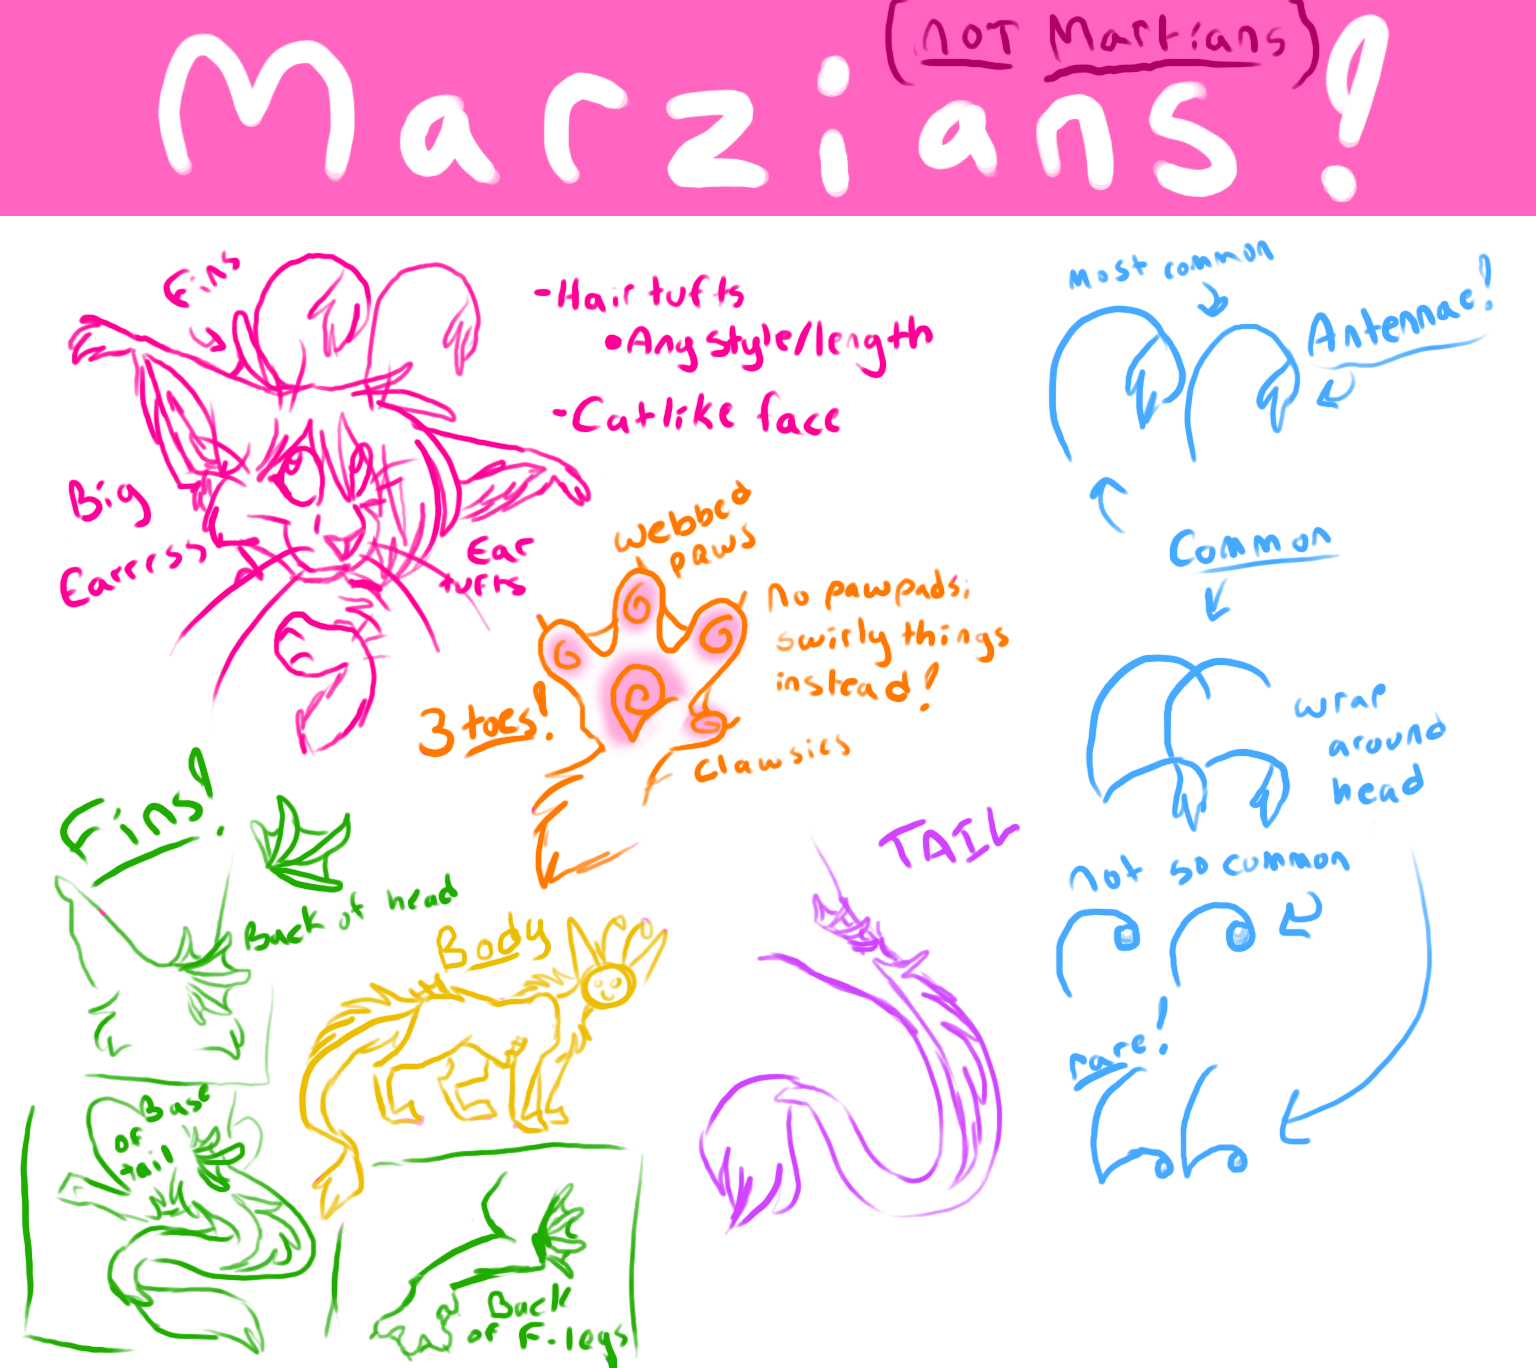 (not Martians)
Marzians!
Fins
-Hair tufts
•Any style/length
-Catlike face
Big
Earrrss
Ear
tufts
webbed
paws
no pawpads;
swirly things
instead!
3 toes!
clawsies
Most common
Antennae!
Common
wrap
around
head
not so common
rare!
Fins!
Back of head
Base
of
tail
Back
of F. legs
Body
TAIL